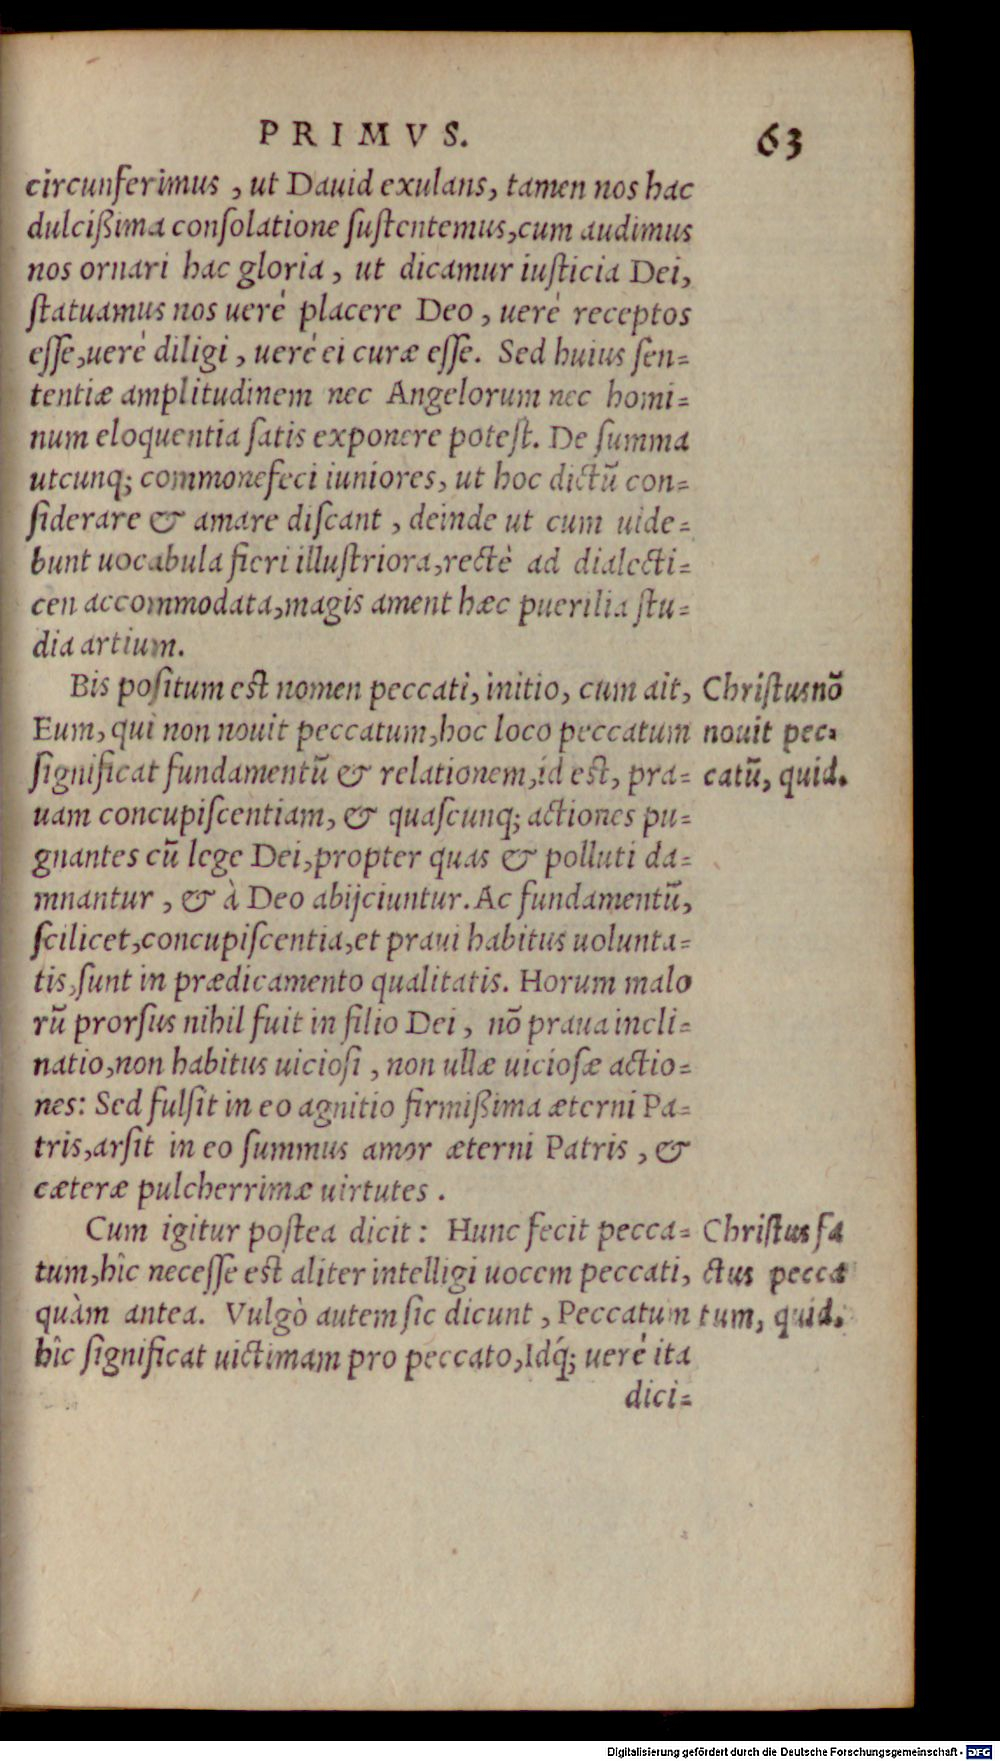 PRIMVS. 63
circunferimus , ut Dauid exulans, tamen nos hac
dulcißima conſolatione ſuſtentemus,cum audimus
nos ornari hac gloria , ut dicamur iuſticia Dei,
ſtatuamus nos ueré placere Deo , ueré receptos
eſſe,ueré diligi , ueré ei curæ eſſe. Sed huius ſen=
tentiæ amplitudinem nec Angelorum nec homi=
num eloquentia ſatis exponere poteſt. De ſumma
utcunq; commonefeci iuniores, ut hoc dictũ con=
ſiderare & amare diſcant , deinde ut cum uide=
bunt uocabula fieri illuſtriora,rectè ad dialecti=
cen accommodata,magis ament hæc puerilia ſtu=
dia artium.
Bis poſitum eſt nomen peccati, initio, cum ait,
Eum, qui non nouit peccatum,hoc loco peccatum
ſignificat fundamentũ & relationem,id eſt, pra=
uam concupiſcentiam, & quaſcunq; actiones pu=
gnantes cũ lege Dei,propter quas & polluti da=
mnantur , & à Deo abijciuntur. Ac fundamentũ,
ſcilicet,concupiſcentia,et praui habitus uolunta=
tis,ſunt in prædicamento qualitatis. Horum malo
rũ prorſus nihil fuit in filio Dei , nõ praua incli=
natio,non habitus uicioſi , non ullæ uicioſæ actio=
nes: Sed fulſit in eo agnitio firmißima æterni Pa=
tris,arſit in eo ſummus amor æterni Patris , &
cæteræ pulcherrimæ uirtutes .
Christus nõ
nouit pec.
catũ, quid.
Cum igitur poſtea dicit : Hunc fecit pecca=
tum,hîc neceſſe eſt aliter intelligi uocem peccati,
quàm antea. Vulgò autem ſic dicunt , Peccatum
hîc ſignificat uictimam pro peccato,Idq́; ueré ita
Chriſtus fa
ctus pecca
tum, quid.
dici=
Digitalisierung gefördert durch die Deutsche Forschungsgemeinschaft - DFG